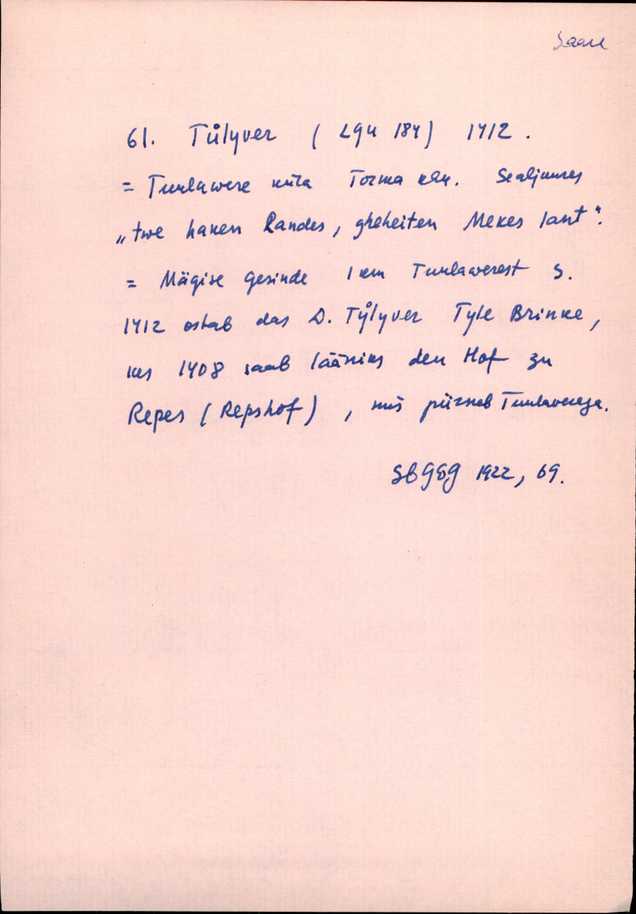 Saare
61. Tůlyver ( LGU 184) 1412.
= Tuulawere küla Torma khk. Sealjuures
„twe haken Landes, gheheiten Mekes lant".
= Mägise Gesinde 1 km Tuulawerest S.
1412 ostab das D. Tůlyver Tyle Brinke,
kes 1408 saab lääniks den Hof zu
Repes (Repshof), mis piirneb Tuulaverega.
SBGEG 1922, 69.